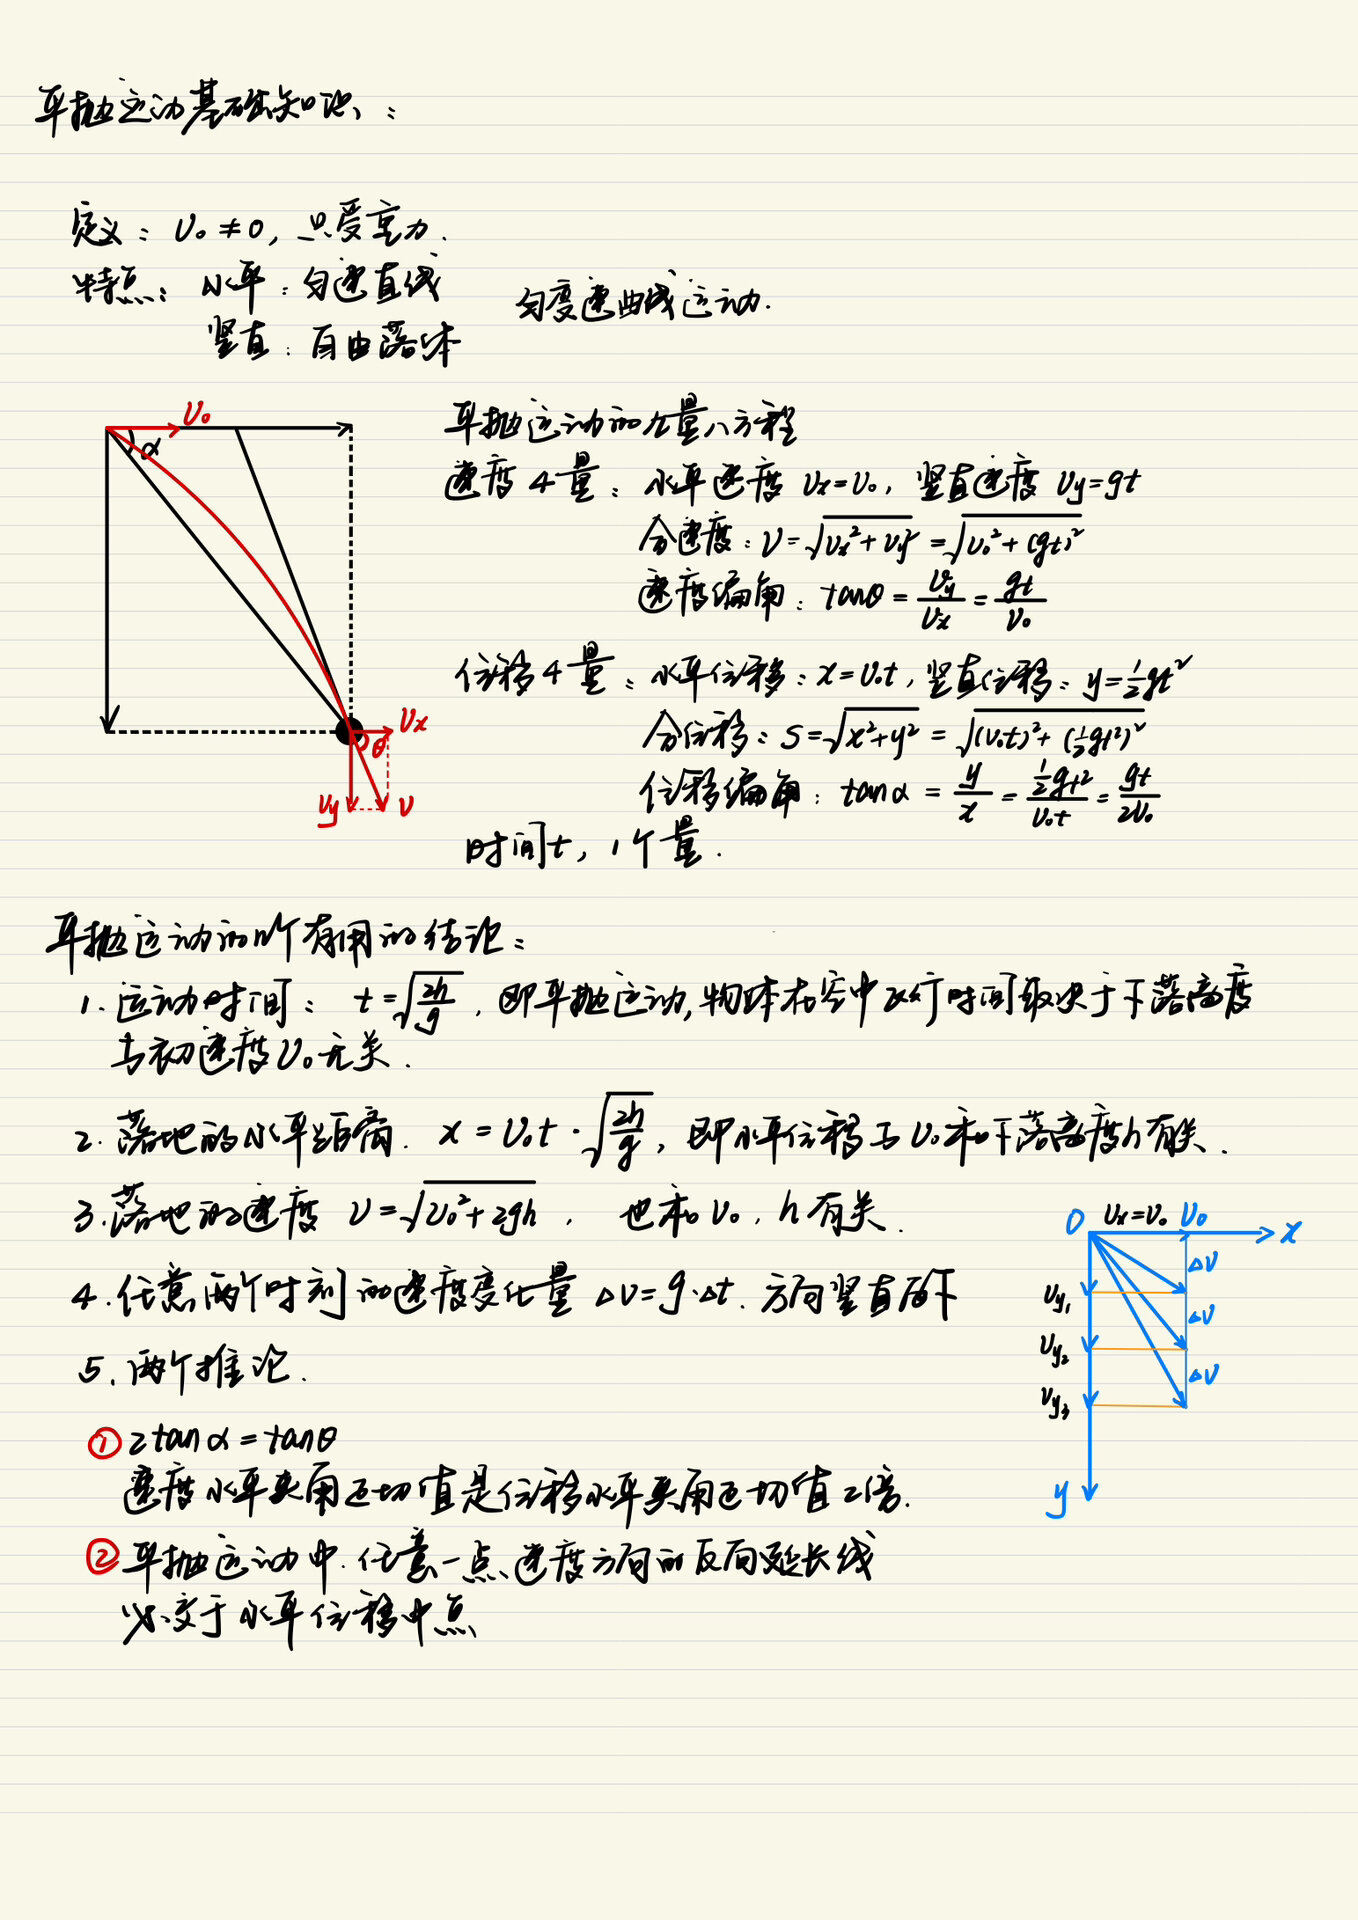 平抛运动基础知识：
定义：v₀≠0，只受重力.
特点：水平：匀速直线
匀变速曲线运动.
竖直：自由落体
v₀
α
vx
θ
vy
v
平抛运动的九量八方程
速度4量：水平速度 vx=v₀，竖直速度 vy=gt
合速度：v=√(vx²+vy²)=√(v₀²+(gt)²)
速度偏角：tanθ=vy/vx=gt/v₀
位移4量：水平位移：x=v₀t，竖直位移：y=½gt²
合位移：s=√(x²+y²)=√((v₀t)²+(½gt²)²)
位移偏角：tanα=y/x=½gt²/v₀t=gt/2v₀
时间t，1个量.
平抛运动的个有用的结论：
1.运动时间：t=√(2h/g)，即平抛运动,物体在空中飞行时间取决于下落高度
与初速度v₀无关.
2.落地的水平距离.x=v₀t·√(2h/g)，即水平位移与v₀和下落高度h有关.
3.落地的速度 v=√(v₀²+2gh)，也和v₀，h有关.
4.任意两个时刻的速度变化量 Δv=g·Δt.方向竖直向下
5.两个推论.
① 2tanα=tanθ
速度水平夹角正切值是位移水平夹角正切值2倍.
② 平抛运动中.任意一点速度方向的反向延长线
必交于水平位移中点
O vx=v₀ v₀ x
Δv
vy₁
Δv
vy₂
Δv
vy₃
y